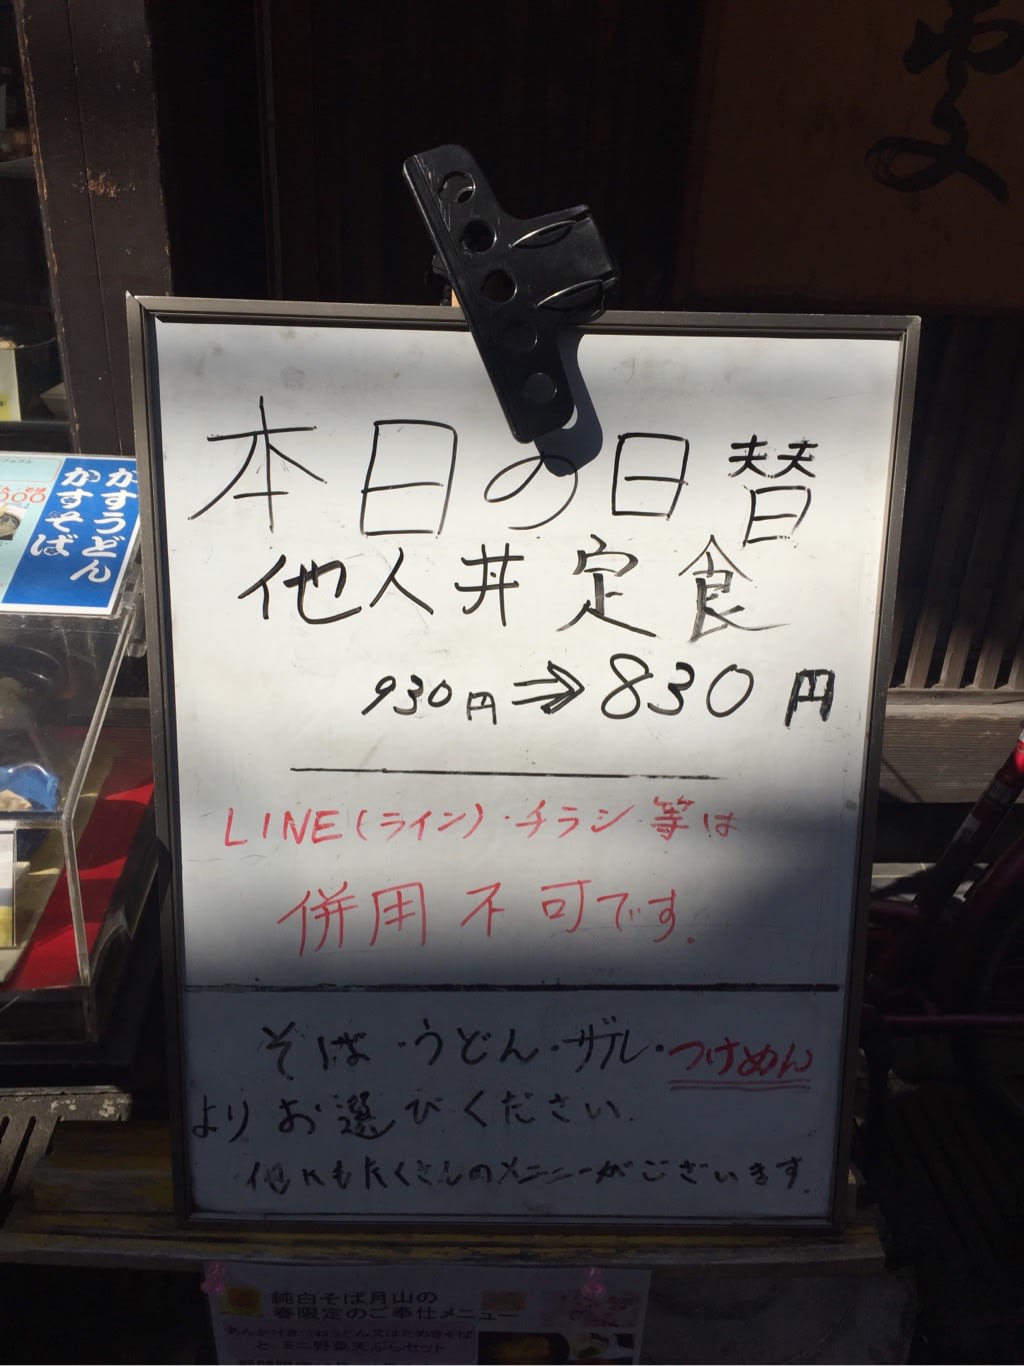 本日の日替
他人丼定食
930円⇒830円
LINE(ライン)・チラシ等は
併用不可です.
そば・うどん・ザル・つけめん
よりお選びください.
他にもたくさんのメニューがございます.
かすうどん
かすそば
純白そば月山の
春限定のご奉仕メニュー
あんかけきつねうどん又はたぬきそば
と ミニ野菜天ぷらセット